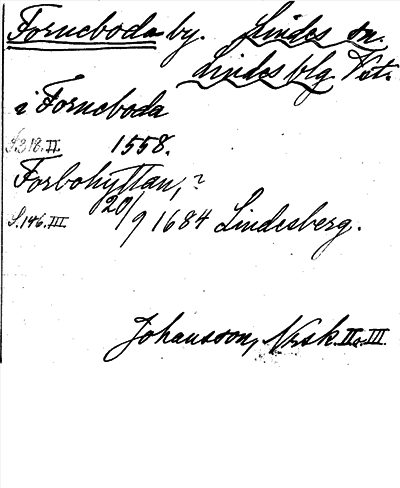 Forneboda by. Lindes sn.
Lindesblg Vstm.
i Forneboda
S.318.II. 1558.
Forbohyttan, ?
S.146.III 20/9 1684 Lindesberg.
Johansson, Nrsk. II o. III.